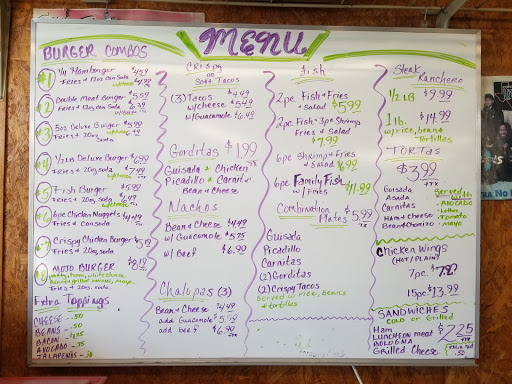 MENU
BURGER COMBOS
#1 1/4 Hamburger $4.59
Fries + 12oz can Soda
#2 Double Meat Burger $5.59
Fries + 12oz can Soda
#3 5oz Deluxe Burger $5.99
Fries + 20oz Soda
#4 1/2 LB Deluxe Burger $6.99
Fries + 20oz Soda
#5 Fish Burger $5.99
Fries + 20oz Soda
#6 6pc Chicken Nuggets $4.49
Fries + can Soda
#7 Crispy Chicken Burger
Fries + 20oz Soda
#8 MOJO BURGER
Fries + 20oz Soda
Extra Toppings
CHEESE - .50
BEANS - .50
BACON -
AVOCADO -
JALAPENOS -
CRISPY
or
Soft Tacos
(3) Tacos $4.49
w/cheese $5.49
w/Guacamole $6.49
Gorditas $1.99
Guisada + Chicken
Picadillo + Carnitas
Bean & Cheese
Nachos
Bean & Cheese $4.49
w/ Guacamole $5.75
w/ Beef $6.99
Chalupas (3)
Bean & Cheese $4.49
add Guacamole
add beef $6.99
Fish
2pc Fish + Fries
+ Salad $5.99
2pc Fish + 3pc Shrimp
Fries + Salad
$7.99
6pc Shrimp + Fries
+ Salad $6.99
6pc Family Fish
w/ Fries $11.99
Combination
Plates $5.99
Guisada
Picadillo
Carnitas
(2) Gorditas
(2) Crispy Tacos
Served w/ rice, beans
+ tortillas
Steak
Ranchero
1/2 LB $9.99
1 lb. $14.99
w/rice, beans +
Tortillas
TORTAS
$3.99
+TX
Guisada
Asada
Carnitas
Ham & Cheese
Bean & Chorizo
Served
- AVOCADO
- Lettuce
Tomato
- Mayo
Chicken Wings
(HOT / PLAIN)
7pc.
15pc $13.99
SANDWICHES
COLD or Grilled
Ham
LUNCHEON meat
BOLOGNA
Grilled Cheese
$2.25
+TX
.50